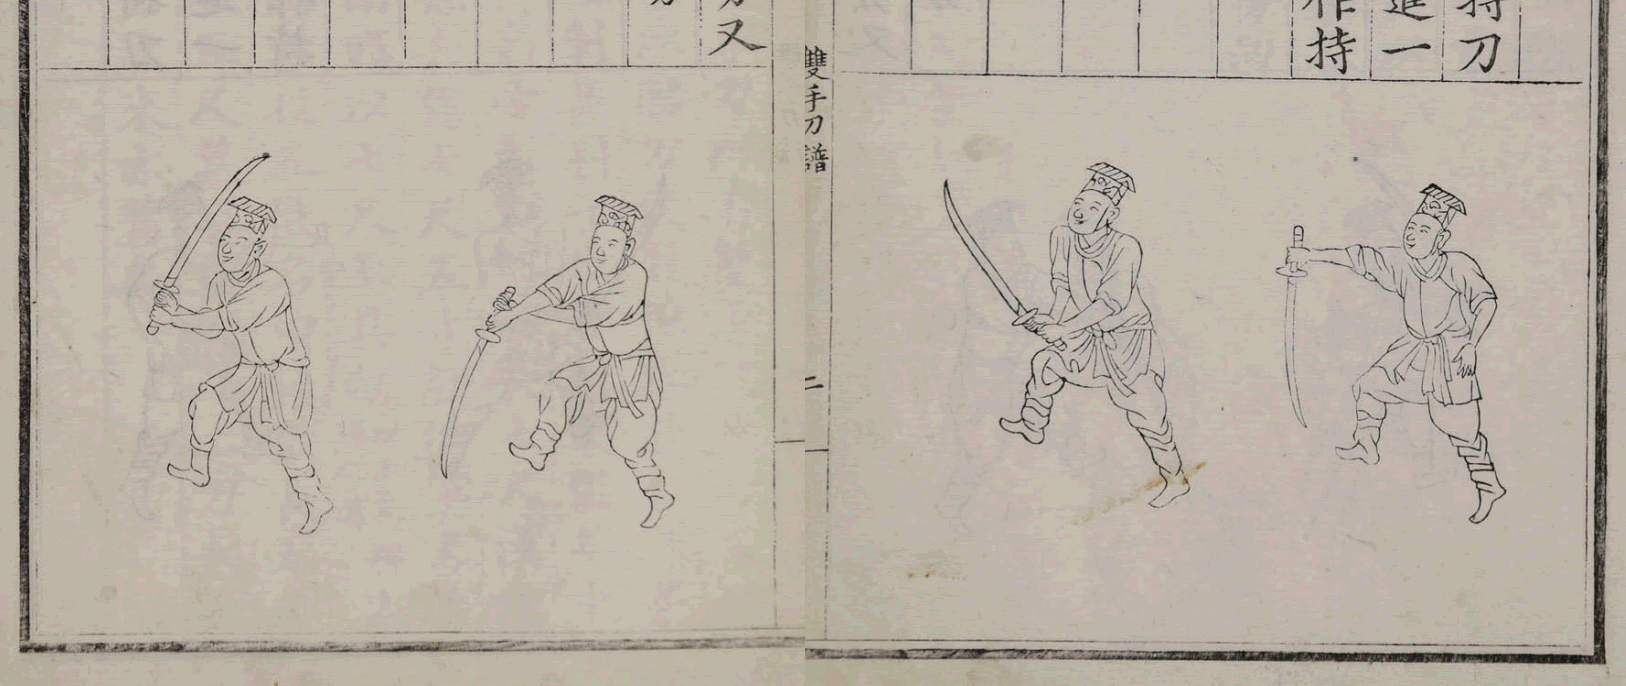 持刀
進一
作持
雙手刀譜
二
刃又